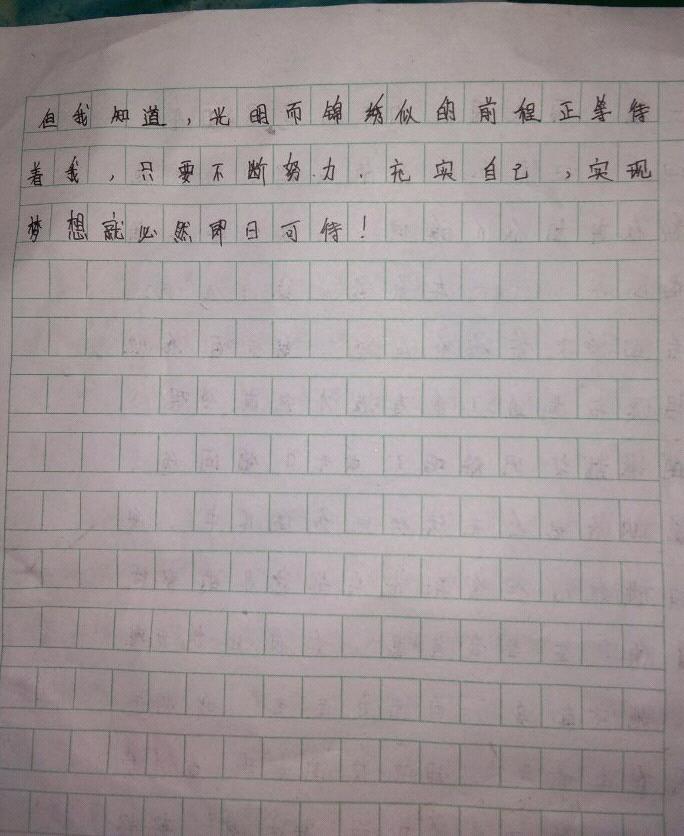 但我知道，光明而锦绣似的前程正等待
着我，只要不断努力．充实自己，实现
梦想就必然即日可待！